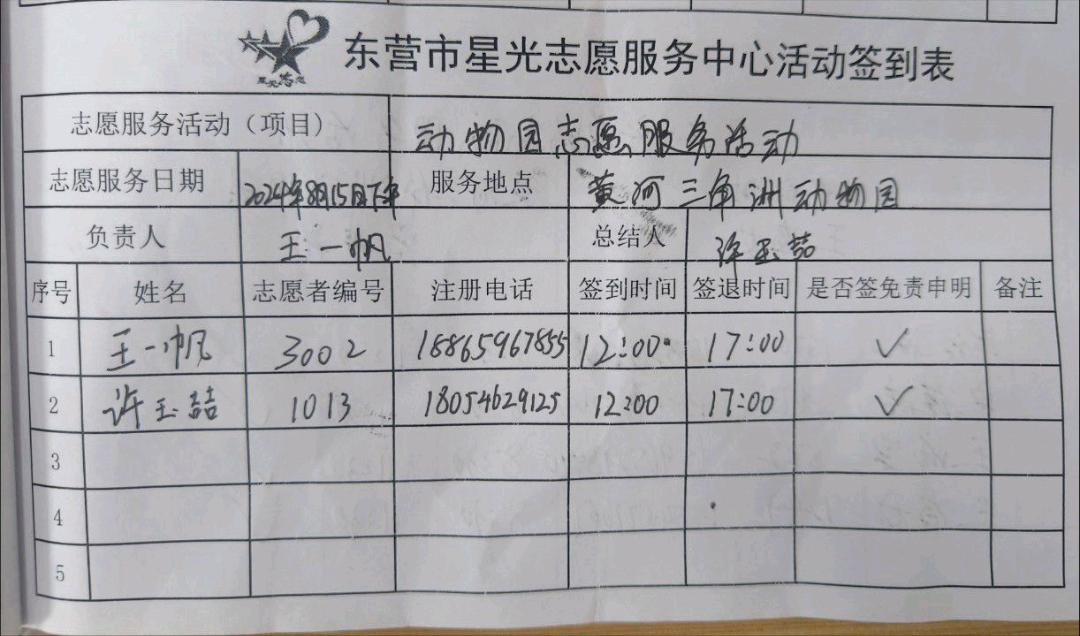 东营市星光志愿服务中心活动签到表
志愿服务活动（项目） 动物园志愿服务活动
志愿服务日期 2024年8月15日下午 服务地点 黄河三角洲动物园
负责人 王一帆 总结人 许玉喆
序号 姓名 志愿者编号 注册电话 签到时间 签退时间 是否签免责申明 备注
1 王一帆 3002 18865967855 12:00 17:00 ✓
2 许玉喆 1013 18054629125 12:00 17:00 ✓
3
4
5